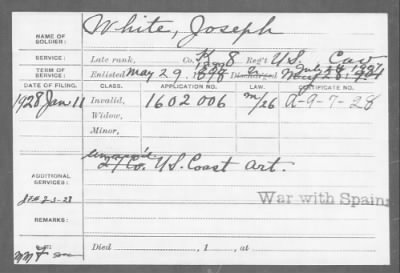 NAME OF SOLDIER: White, Joseph
SERVICE: Late rank, Co. K 8 Reg't U.S. Cav
TERM OF SERVICE: Enlisted May 29, 1898 Discharged
DATE OF FILING. CLASS. APPLICATION NO. LAW. CERTIFICATE NO.
1928 Jan 11 Invalid, 1602006 A-9-7-28
Widow,
Minor,
ADDITIONAL SERVICES: Co. U.S. Coast Art.
War with Spain
REMARKS:
Died , 1 , at